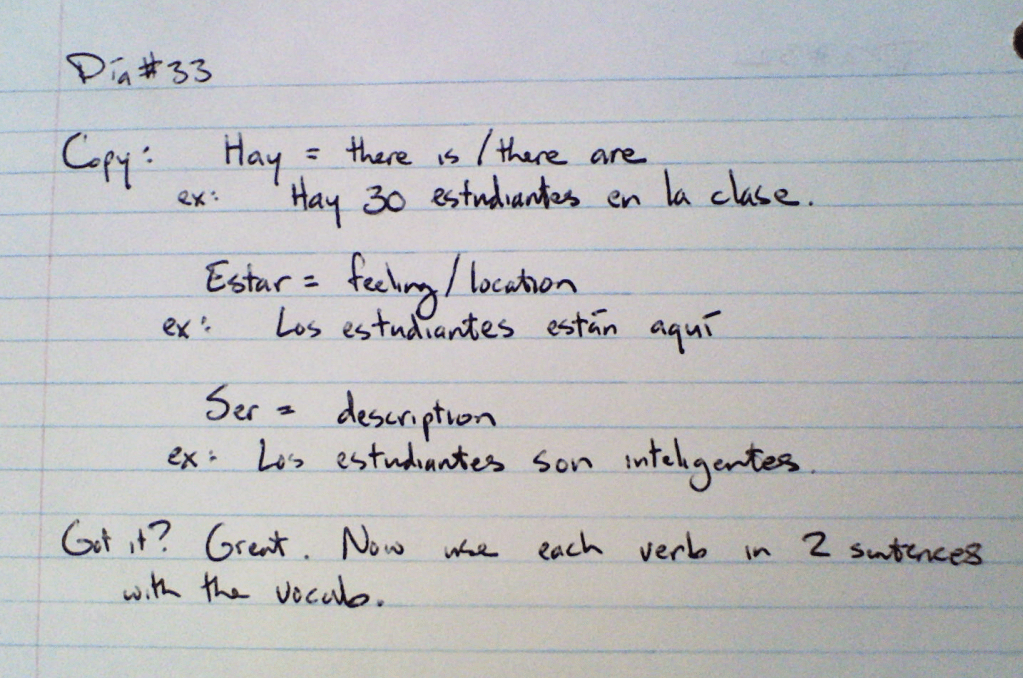 Día #33
Copy: Hay = there is / there are
ex: Hay 30 estudiantes en la clase.
Estar = feeling / location
ex: Los estudiantes están aquí
Ser = description
ex: Los estudiantes son inteligentes.
Got it? Great. Now use each verb in 2 sentences
with the vocab.